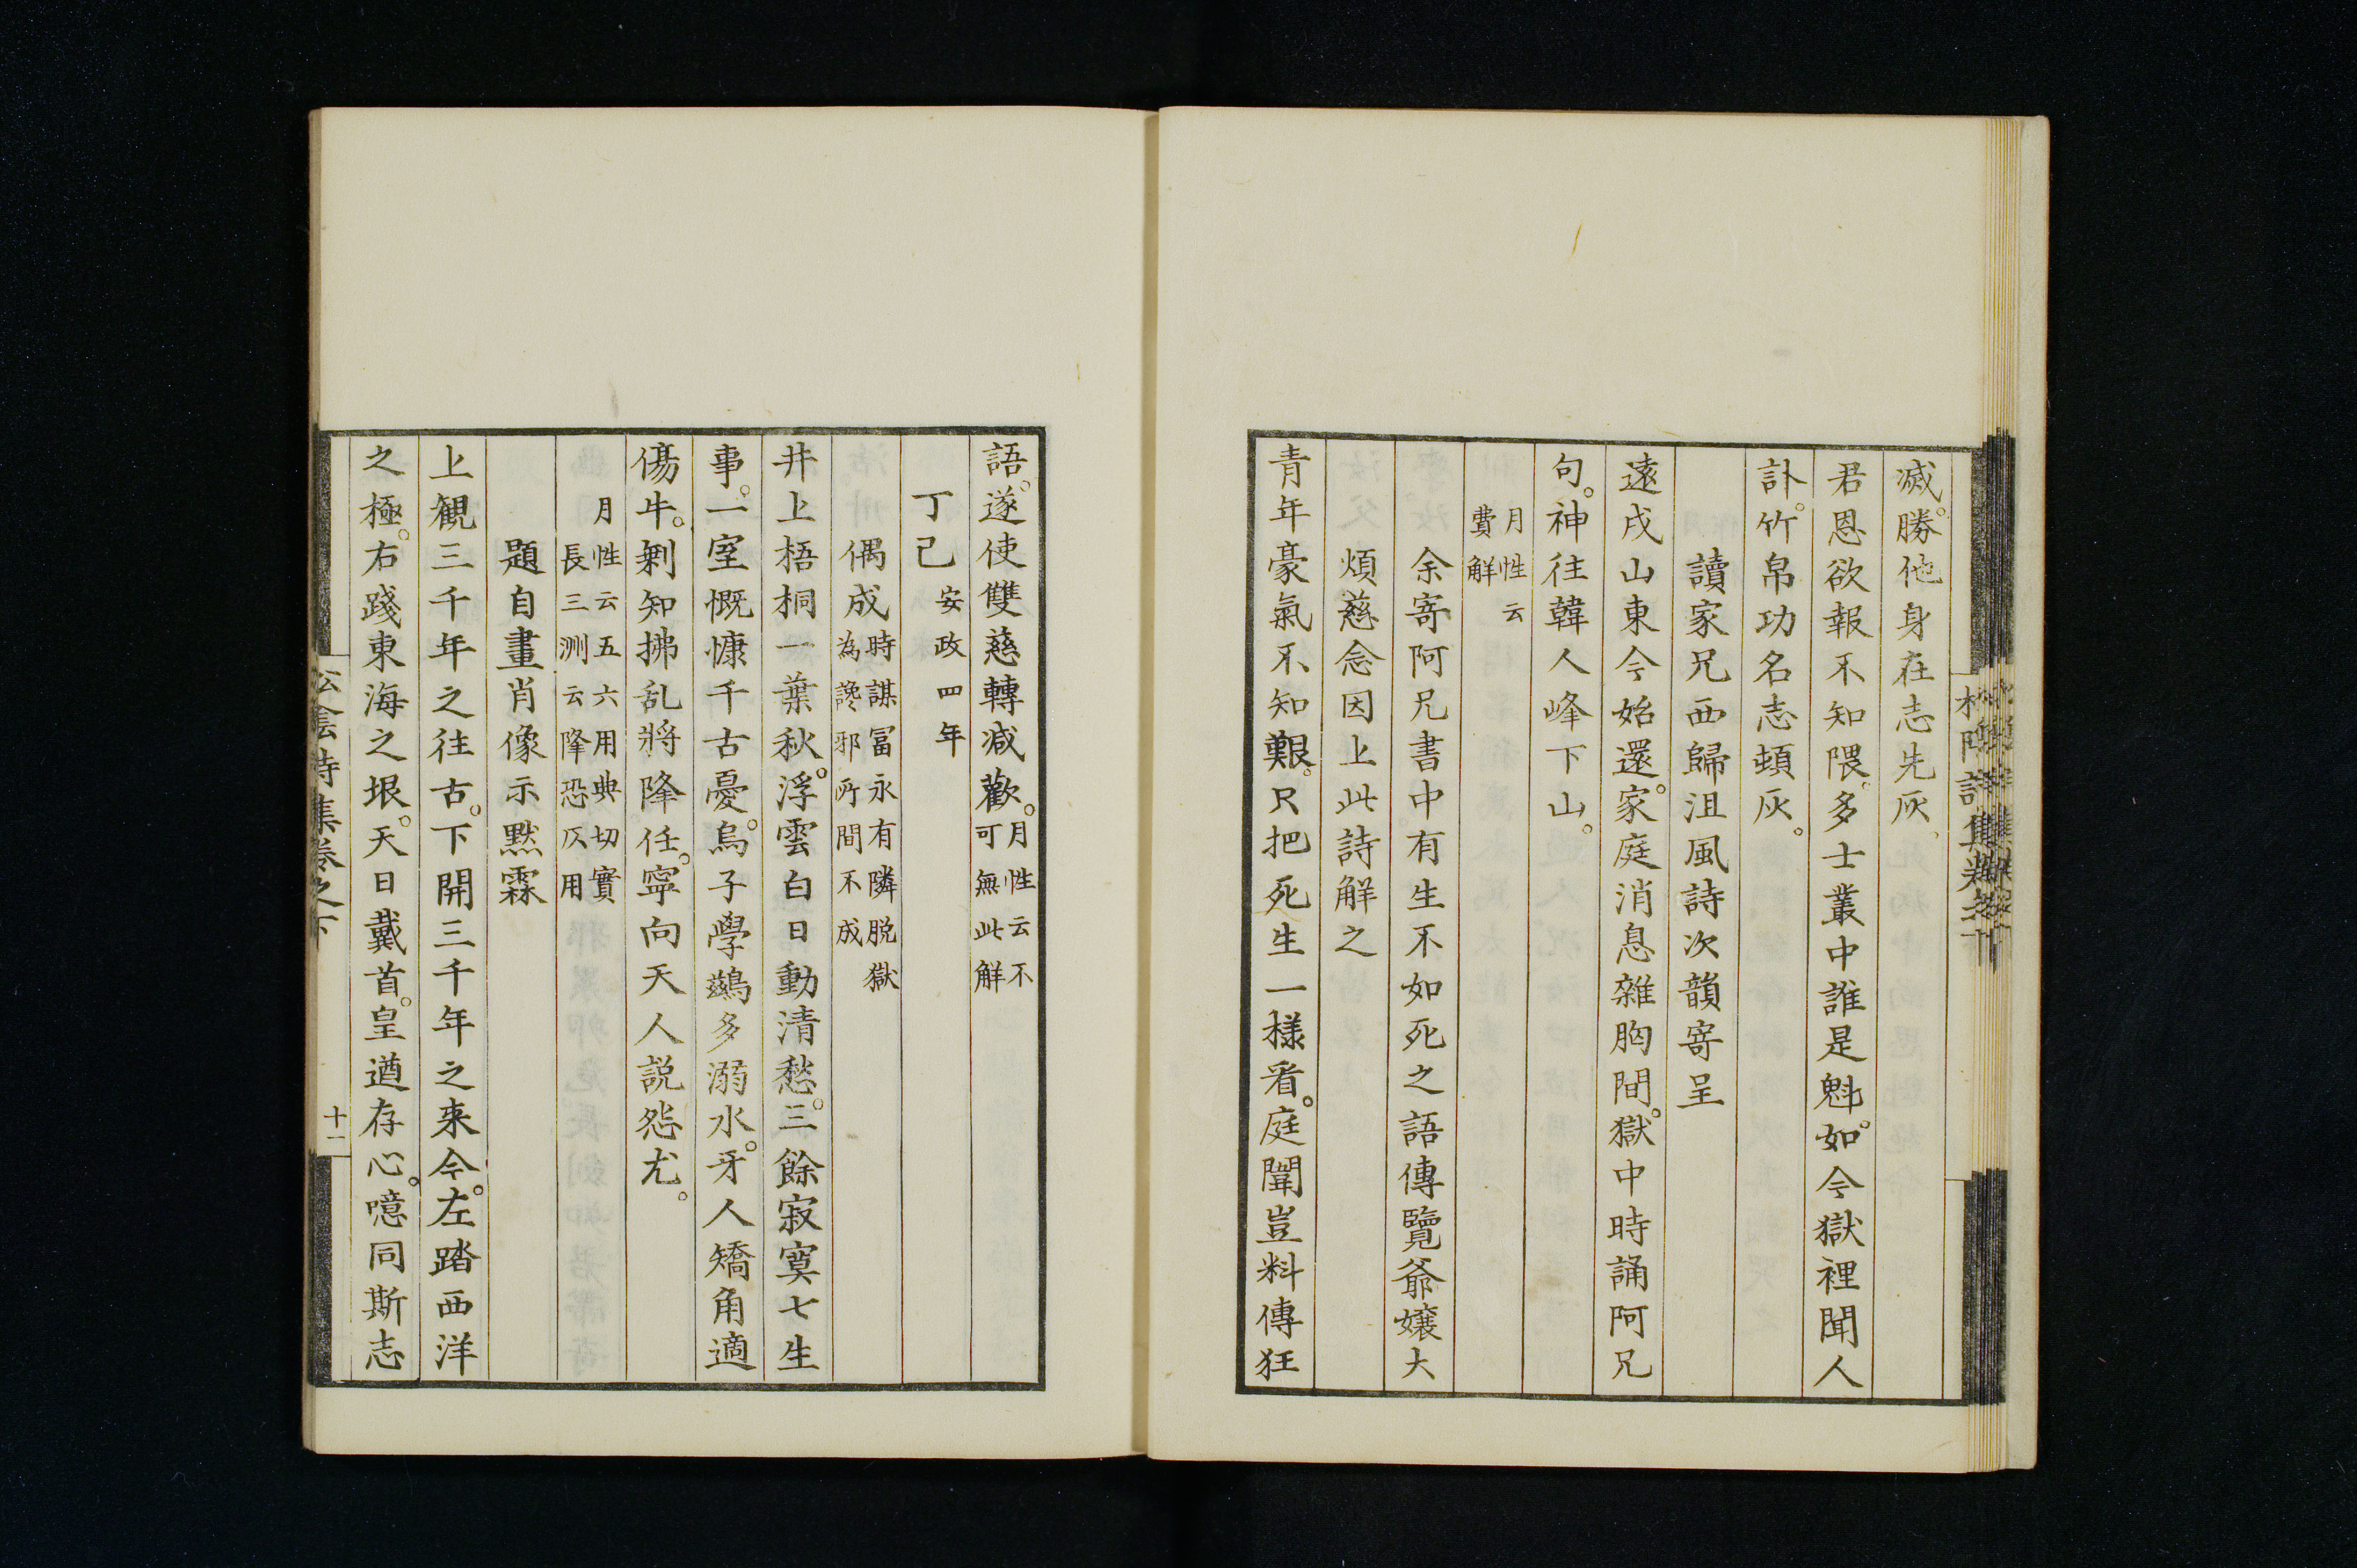 滅。勝他身在志先灰。
君恩欲報不知隈。多士叢中誰是魁。如今獄裡聞人
訃。竹帛功名志頓灰。
讀家兄西歸沮風詩次韻寄呈
遠戍山東今始還。家庭消息雜胸間。獄中時誦阿兄
句。神往韓人峰下山。
月性云
費解
余寄阿兄書中有生不如死之語傳覽爺孃大
煩慈念因上此詩解之
青年豪氣不知艱。只把死生一樣看。庭闈豈料傳狂
語。遂使雙慈轉減歡。
月性云不
可無此解
丁巳
安政四年
偶成
時謀冨永有隣脱獄
為讒邪所間不成
井上梧桐一葉秋。浮雲白日動清愁。三餘寂寞七生
事。一室慨慷千古憂。烏子學鷀多溺水。牙人矯角適
傷牛。剰知拂乱將降任。寧向天人説怨尤。
月性云五六用典切實
長三洲云降恐仄用
題自畫肖像示黙霖
上観三千年之往古。下開三千年之来今。左踏西洋
之極。右踐東海之垠。天日戴首。皇遒存心。噫同斯志
詩集巻之下
十一